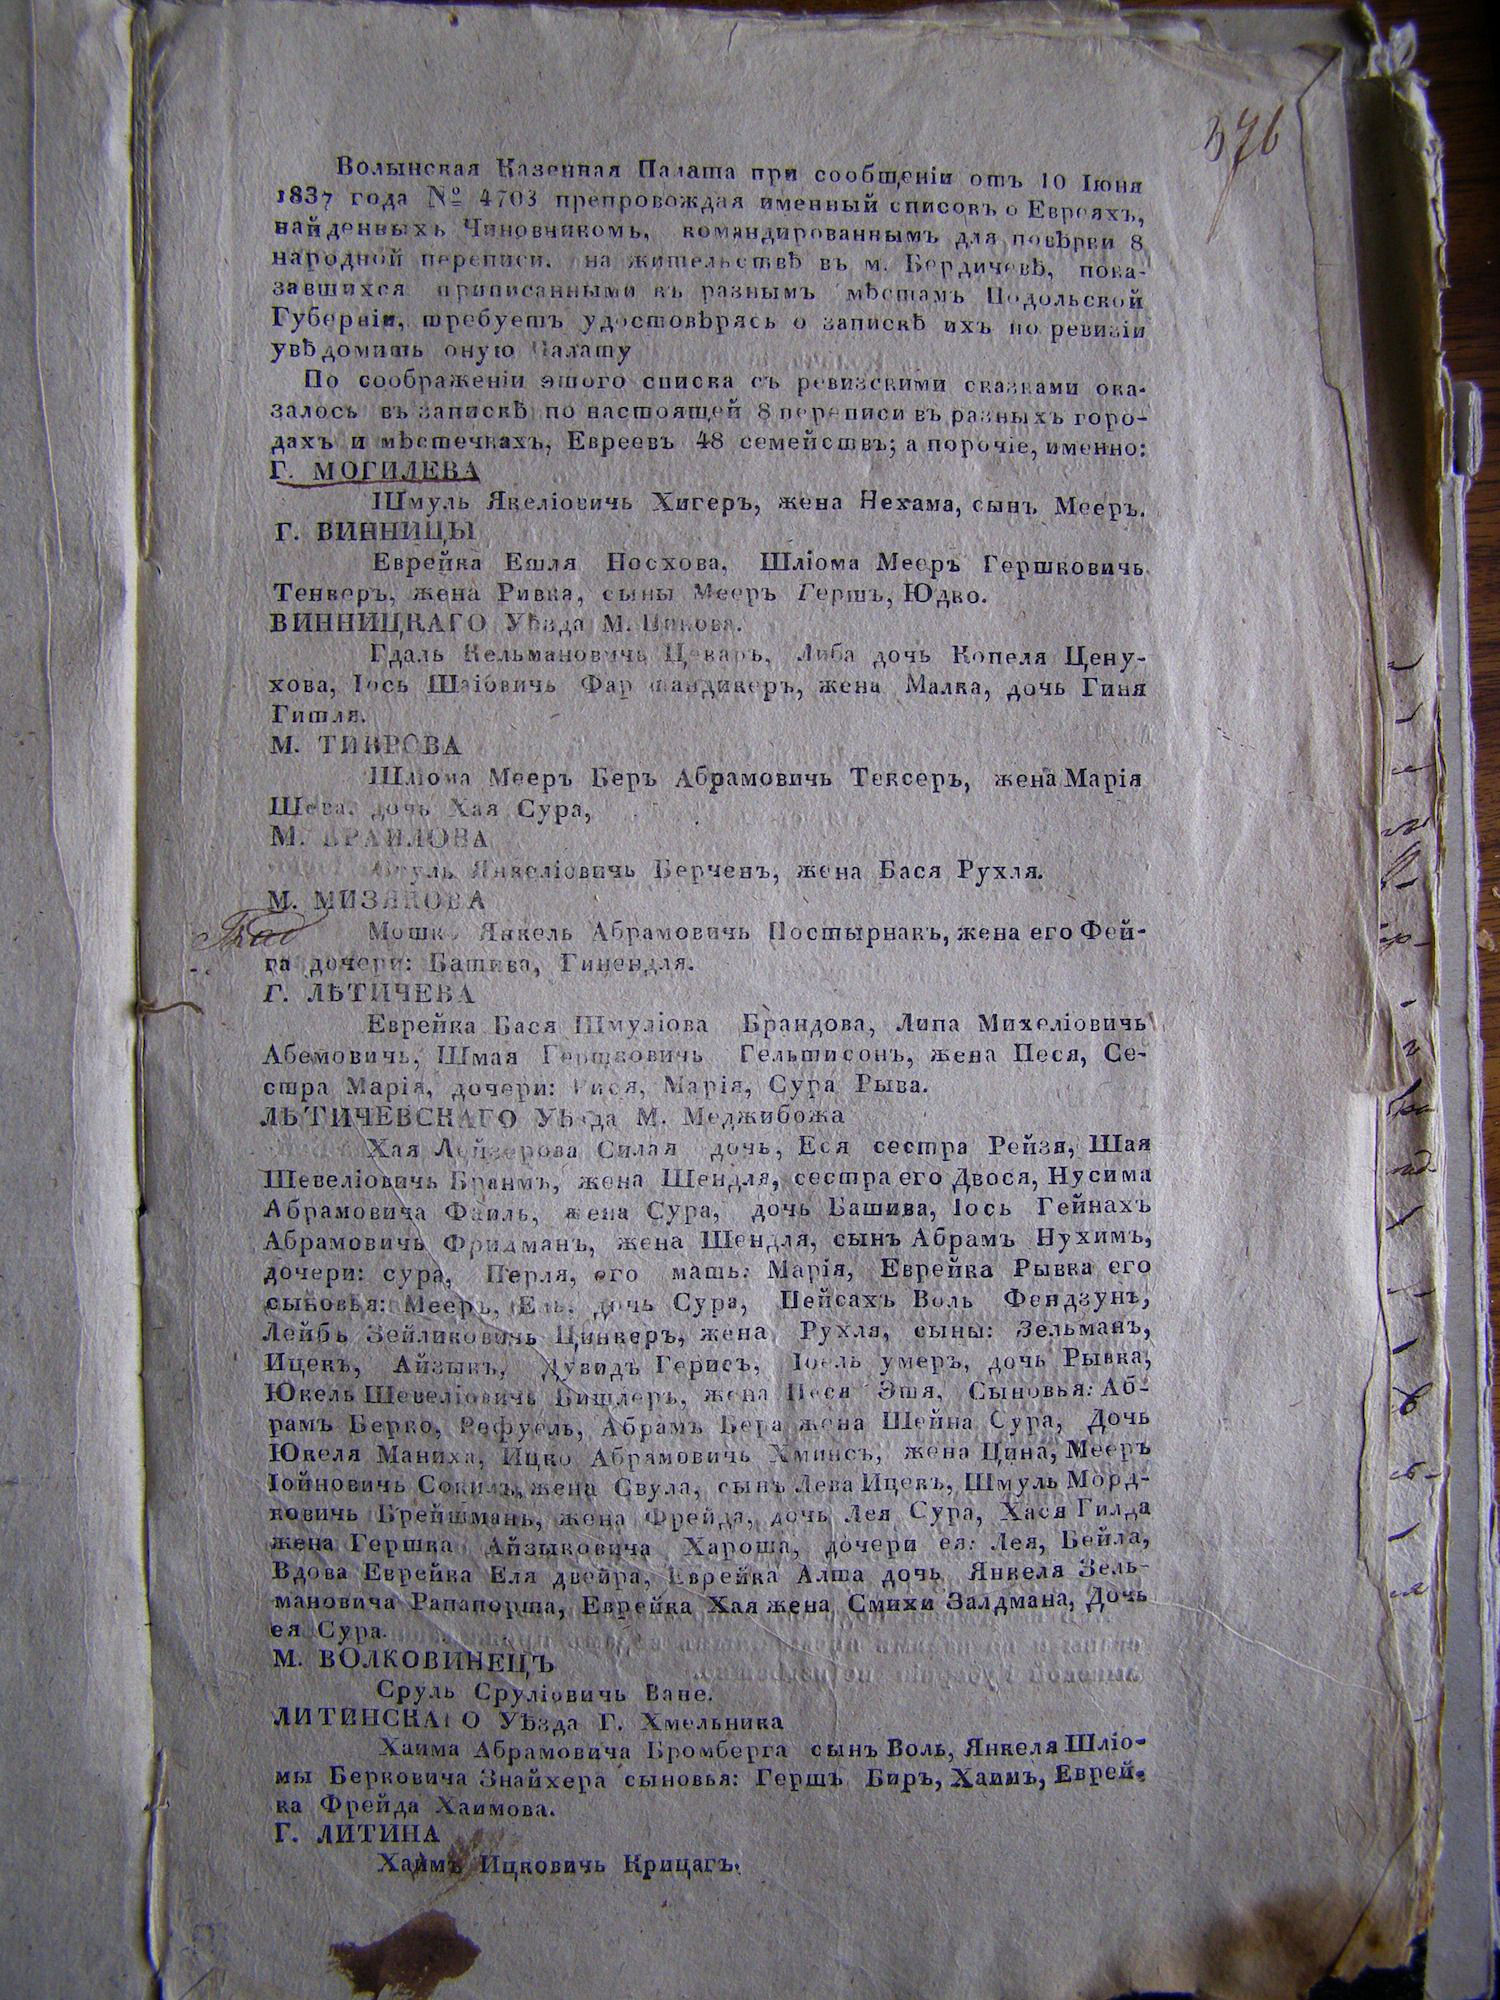 376
Волынская Казенная Палата при сообщеніи отъ 10 Іюня
1837 года № 4703 препровождая именный списокъ о Евреяхъ,
найденныхъ Чиновникомъ, командированнымъ для повѣрки 8
народной переписи, на жительствѣ въ м. Бердичевѣ, пока-
завшихся приписанными къ разнымъ мѣстамъ Подольской
Губерніи, требуетъ удостовѣрясь о запискѣ ихъ по ревизіи
увѣдомить оную Палату
По соображеніи этого списка съ ревизскими сказками ока-
залось въ запискѣ по настоящей 8 переписи въ разныхъ горо-
дахъ и мѣстечкахъ, Евреевъ 48 семействъ; а порочіе, именно:
Г. МОГИЛЕВА
Шмуль Якеліовичь Хигеръ, жена Нехама, сынъ Мееръ.
Г. ВИННИЦЫ
Еврейка Етля Носхова, Шліома Мееръ Гершковичь
Тенкеръ, жена Ривка, сыны Мееръ Гершъ, Юдко.
ВИННИЦКАГО Уѣзда М. Пикова.
Гдаль Кельмановичь Цекаръ, Либа дочь Копеля Цену-
хова, Іось Шліовичь жена Малка, дочь Гиня
Гитля.
М. ТИВРОВА
Шліома Мееръ Беръ Абрамовичь Тексеръ, жена Марія
Шева, дочь Хая Сура,
М. БРАИЛОВА
Янкеліовичь Берченъ, жена Бася Рухля.
М. МИЗЯКОВА
Мошко Янкель Абрамовичь Постырнакъ, жена его Фей-
га дочери: Башива, Гинендля.
Г. ЛѢТИЧЕВА
Еврейка Бася Шмуліова Брандова, Липа Михеліовичь
Абемовичь, Шмая Гершковичь Гельтисонъ, жена Песя, Се-
стра Марія, дочери: Марія, Сура Рыва.
ЛѢТИЧЕВСКАГО Уѣзда М. Меджибожа
Хая Лейзерова Силая дочь, Еся сестра Рейзя, Шая
Шевеліовичь Бранмъ, жена Шендля, сестра его Двося, Нусима
Абрамовича Фаиль, жена Сура, дочь Башива, Іось Гейнахъ
Абрамовичь Фридманъ, жена Шендля, сынъ Абрамъ Нухимъ,
дочери: сура, Перля, его мать: Марія, Еврейка Рывка его
сыновья: Мееръ, Ель, дочь Сура, Пейсахъ Воль Фендзунъ,
Лейбь Зейликовичь Цинкеръ, жена Рухля, сыны: Зельманъ,
Ицекъ, Айзыкъ, Дувидъ Герисъ, Іоель умеръ, дочь Рывка,
Юкель Шевеліовичь Битлеръ, жена Песя Этя, Сыновья: Аб-
рамъ Берко, Рефуель, Абрамъ Бера жена Шейна Сура, Дочь
Юкеля Маниха, Ицко Абрамовичь Хминсъ, жена Цина, Мееръ
Іойновичь жена Свула, сынъ Лева Ицекъ, Шмуль Морд-
ковичь Брейшмань, жена Фрейда, дочь Лея Сура, Хася Гилда
жена Гершка Айзыковича Хароша, дочери ея: Лея, Бейла,
Вдова Еврейка Еля двейра, Еврейка Алта дочь Янкеля Зель-
мановича Рапапорта, Еврейка Хая жена Смихи Залдмана, Дочь
ея Сура.
М. ВОЛКОВИНЕЦЪ
Сруль Сруліовичь Ване.
ЛИТИНСКАГО Уѣзда Г. Хмельника
Хаима Абрамовича Бромберга сынъ Воль, Янкеля Шліо-
мы Берковича Знайхера сыновья: Гершъ Биръ, Хаимъ, Еврей-
ка Фрейда Хаимова.
Г. ЛИТИНА
Хаимъ Ицковичь Крицагъ.